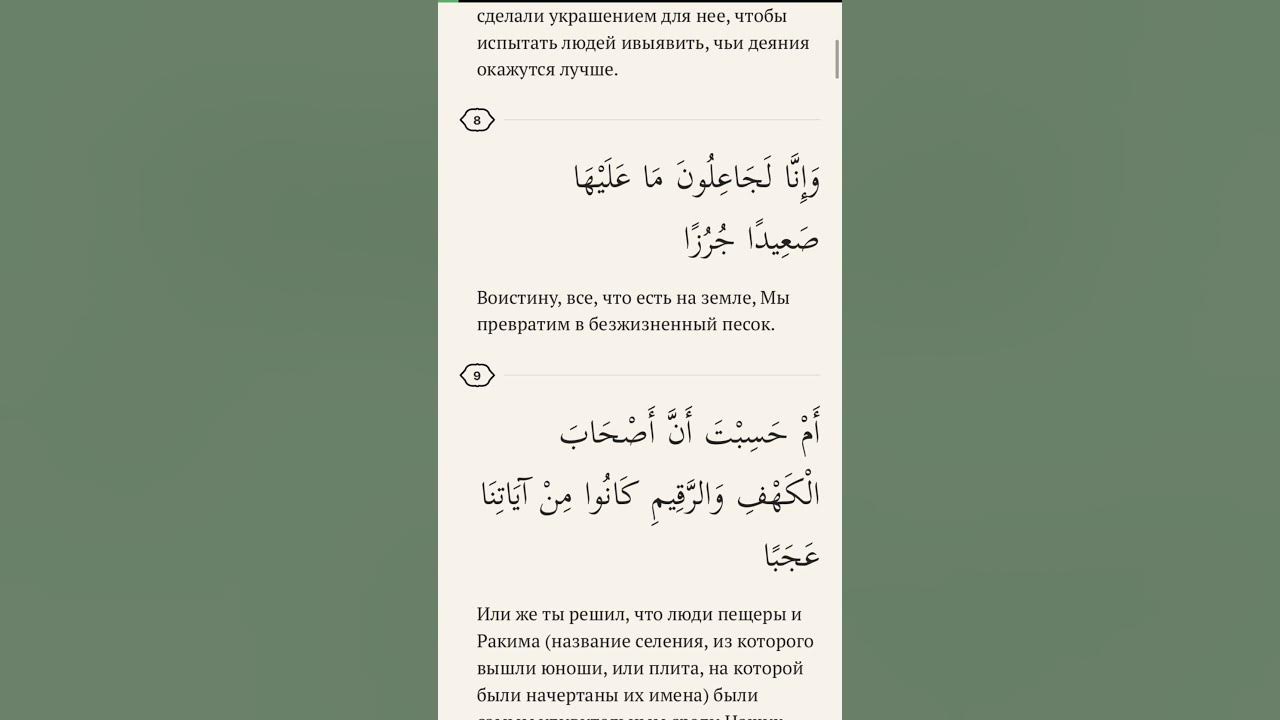 сделали украшением для нее, чтобы
испытать людей ивыявить, чьи деяния
окажутся лучше.
8
وَإِنَّا لَجَاعِلُونَ مَا عَلَيْهَا
صَعِيدًا جُرُزًا
Воистину, все, что есть на земле, Мы
превратим в безжизненный песок.
9
أَمْ حَسِبْتَ أَنَّ أَصْحَابَ
الْكَهْفِ وَالرَّقِيمِ كَانُوا مِنْ آيَاتِنَا
عَجَبًا
Или же ты решил, что люди пещеры и
Ракима (название селения, из которого
вышли юноши, или плита, на которой
были начертаны их имена) были